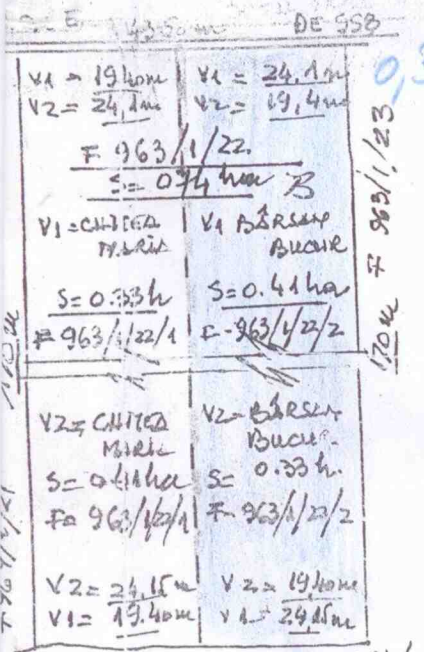 E 43.50m DE 558
V1 = 19.40m V1 = 24,1m
V2 = 24,1m V2 = 19,4m
F 963/1/22
S = 0,74 ha
V1 = CHITEA V1 BÂRSAN
MARIA BUCUR
S = 0.33 h S = 0.41 ha
F = 963/1/22/1 F - 963/1/22/2
V2 = CHITEA V2 = BÂRSAN
MARIA BUCUR
S = 0.41 ha S = 0.33 h.
F = 963/1/22/1 F - 963/1/22/2
V2 = 24,15m V2 = 19,40m
V1 = 19.40m V1 = 24,15m
170m F 963/1/23
0,3